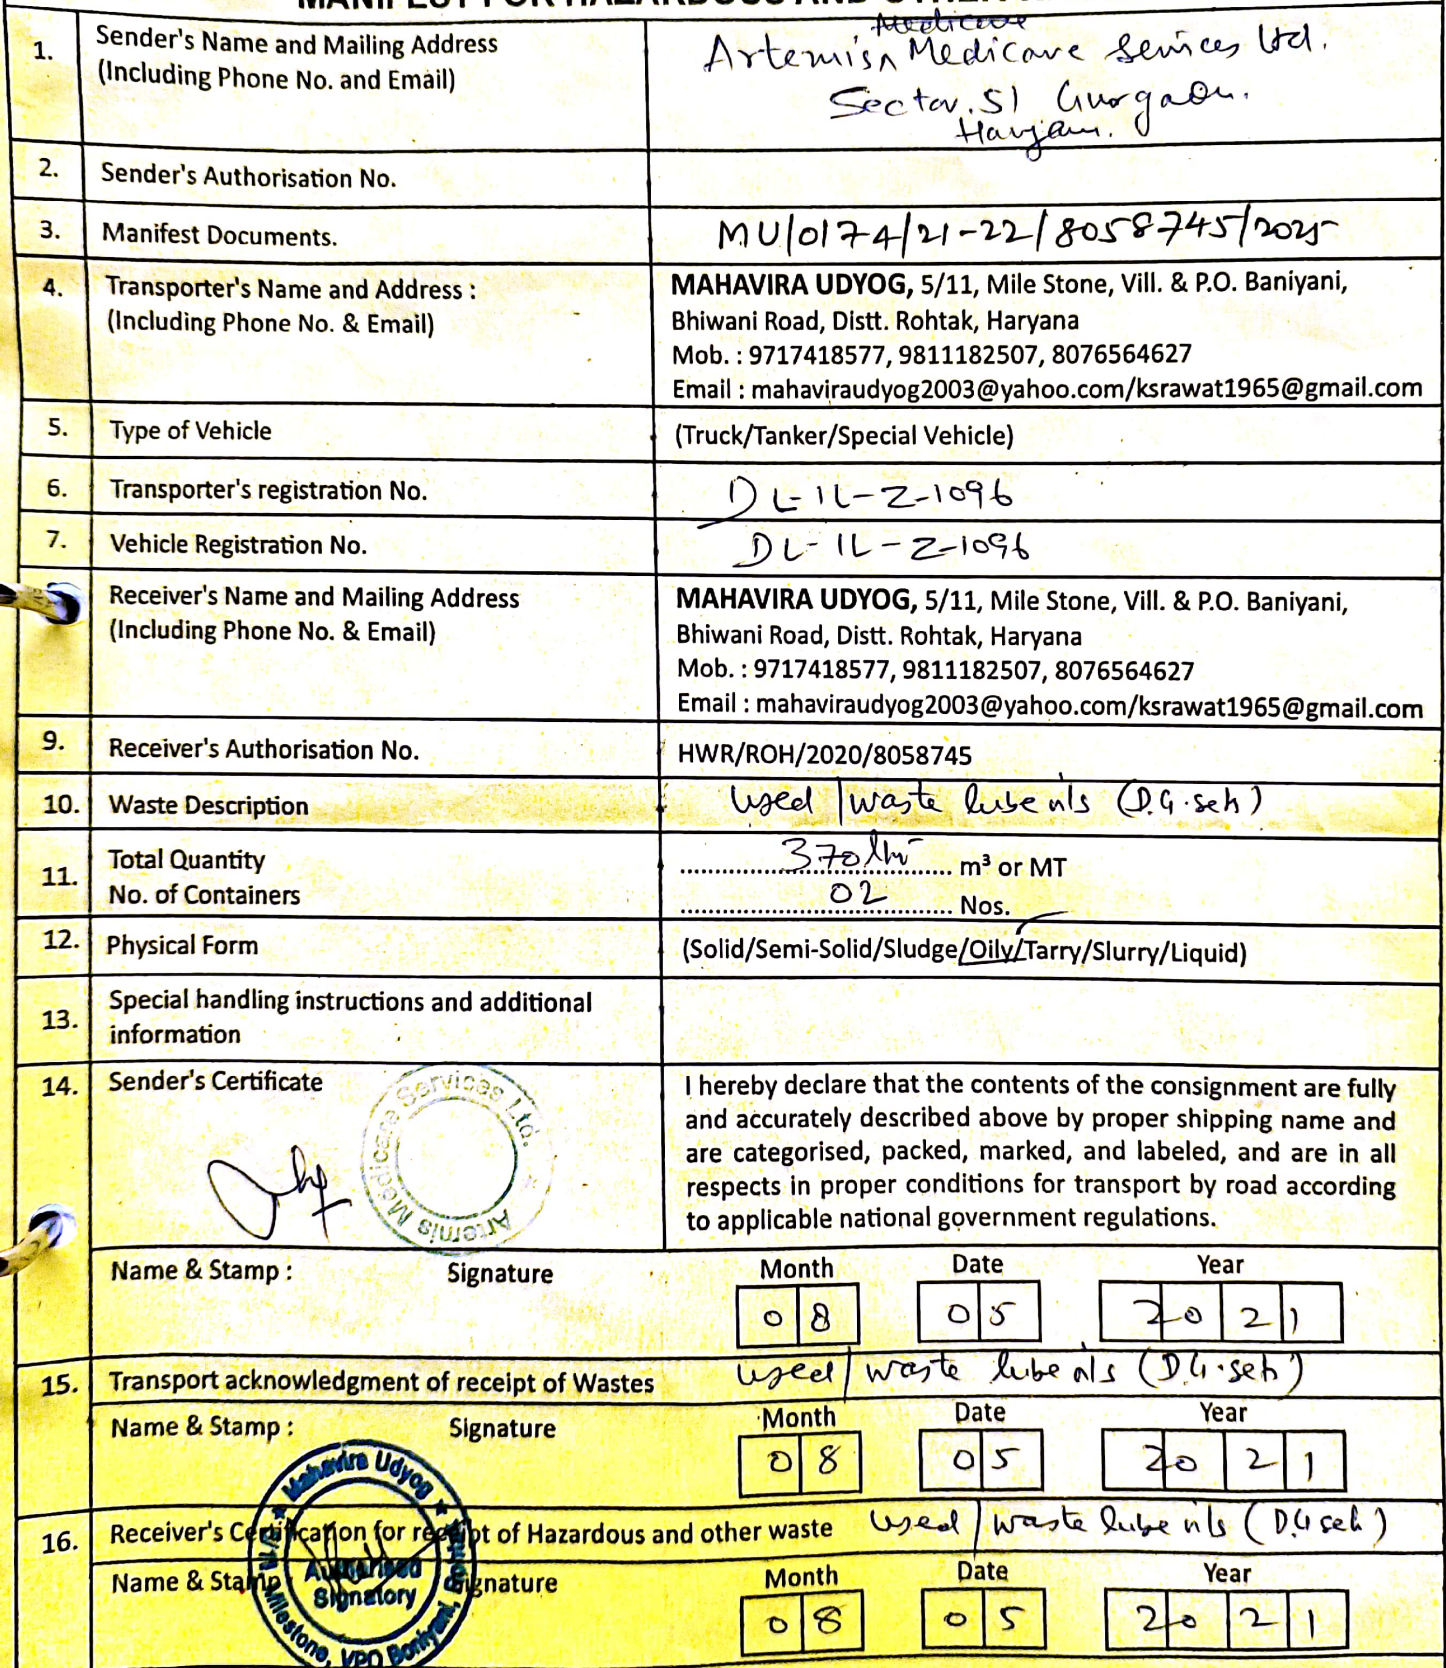 MANIFEST FOR HAZARDOUS AND OTHER
1. Sender's Name and Mailing Address
(Including Phone No. and Email)
Medicare
Artemis Medicare Services Ltd.
Sector.51 Gurgaon.
Haryana.
2. Sender's Authorisation No.
3. Manifest Documents. MU/0174/21-22/8058745/2025
4. Transporter's Name and Address :
(Including Phone No. & Email)
MAHAVIRA UDYOG, 5/11, Mile Stone, Vill. & P.O. Baniyani,
Bhiwani Road, Distt. Rohtak, Haryana
Mob. : 9717418577, 9811182507, 8076564627
Email : mahaviraudyog2003@yahoo.com/ksrawat1965@gmail.com
5. Type of Vehicle (Truck/Tanker/Special Vehicle)
6. Transporter's registration No. DL-1L-Z-1096
7. Vehicle Registration No. DL-1L-Z-1096
Receiver's Name and Mailing Address
(Including Phone No. & Email)
MAHAVIRA UDYOG, 5/11, Mile Stone, Vill. & P.O. Baniyani,
Bhiwani Road, Distt. Rohtak, Haryana
Mob. : 9717418577, 9811182507, 8076564627
Email : mahaviraudyog2003@yahoo.com/ksrawat1965@gmail.com
9. Receiver's Authorisation No. HWR/ROH/2020/8058745
10. Waste Description Used/waste lube oils (D.G.sets)
11. Total Quantity 370 ltr m³ or MT
No. of Containers 02 Nos.
12. Physical Form (Solid/Semi-Solid/Sludge/Oily/Tarry/Slurry/Liquid)
13. Special handling instructions and additional
information
14. Sender's Certificate
Artemis Medicare Services Ltd.
I hereby declare that the contents of the consignment are fully
and accurately described above by proper shipping name and
are categorised, packed, marked, and labeled, and are in all
respects in proper conditions for transport by road according
to applicable national government regulations.
Name & Stamp : Signature Month Date Year
08 05 2021
15. Transport acknowledgment of receipt of Wastes Used/waste lube oils (D.G.sets)
Name & Stamp : Signature Month Date Year
08 05 2021
16. Receiver's Certification for receipt of Hazardous and other waste Used/waste lube oils (D.G sets)
Name & Stamp Signature Month Date Year
08 05 2021
Mahavira Udyog
Authorised
Signatory
Milestone, VPO